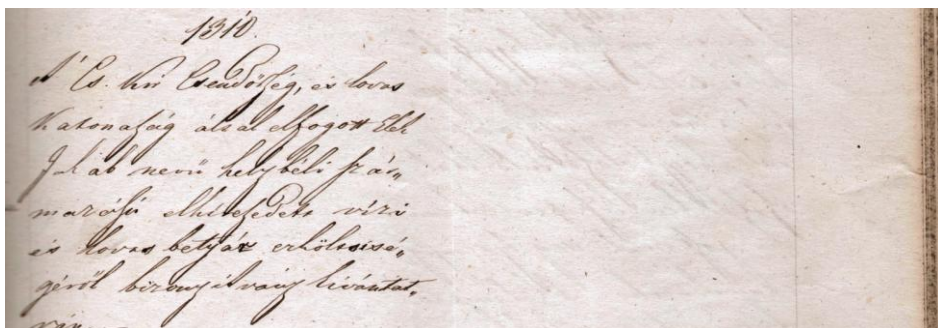 1310.
A' Cs. Kir Csendőrség, és lovas
katonaság által elfogott Ebb
Jakab nevű helybéli szár„
mazású elhíresedett vízi
és lovas betyár erkölcsisé„
géről bizonyítvány kívántat„
ván